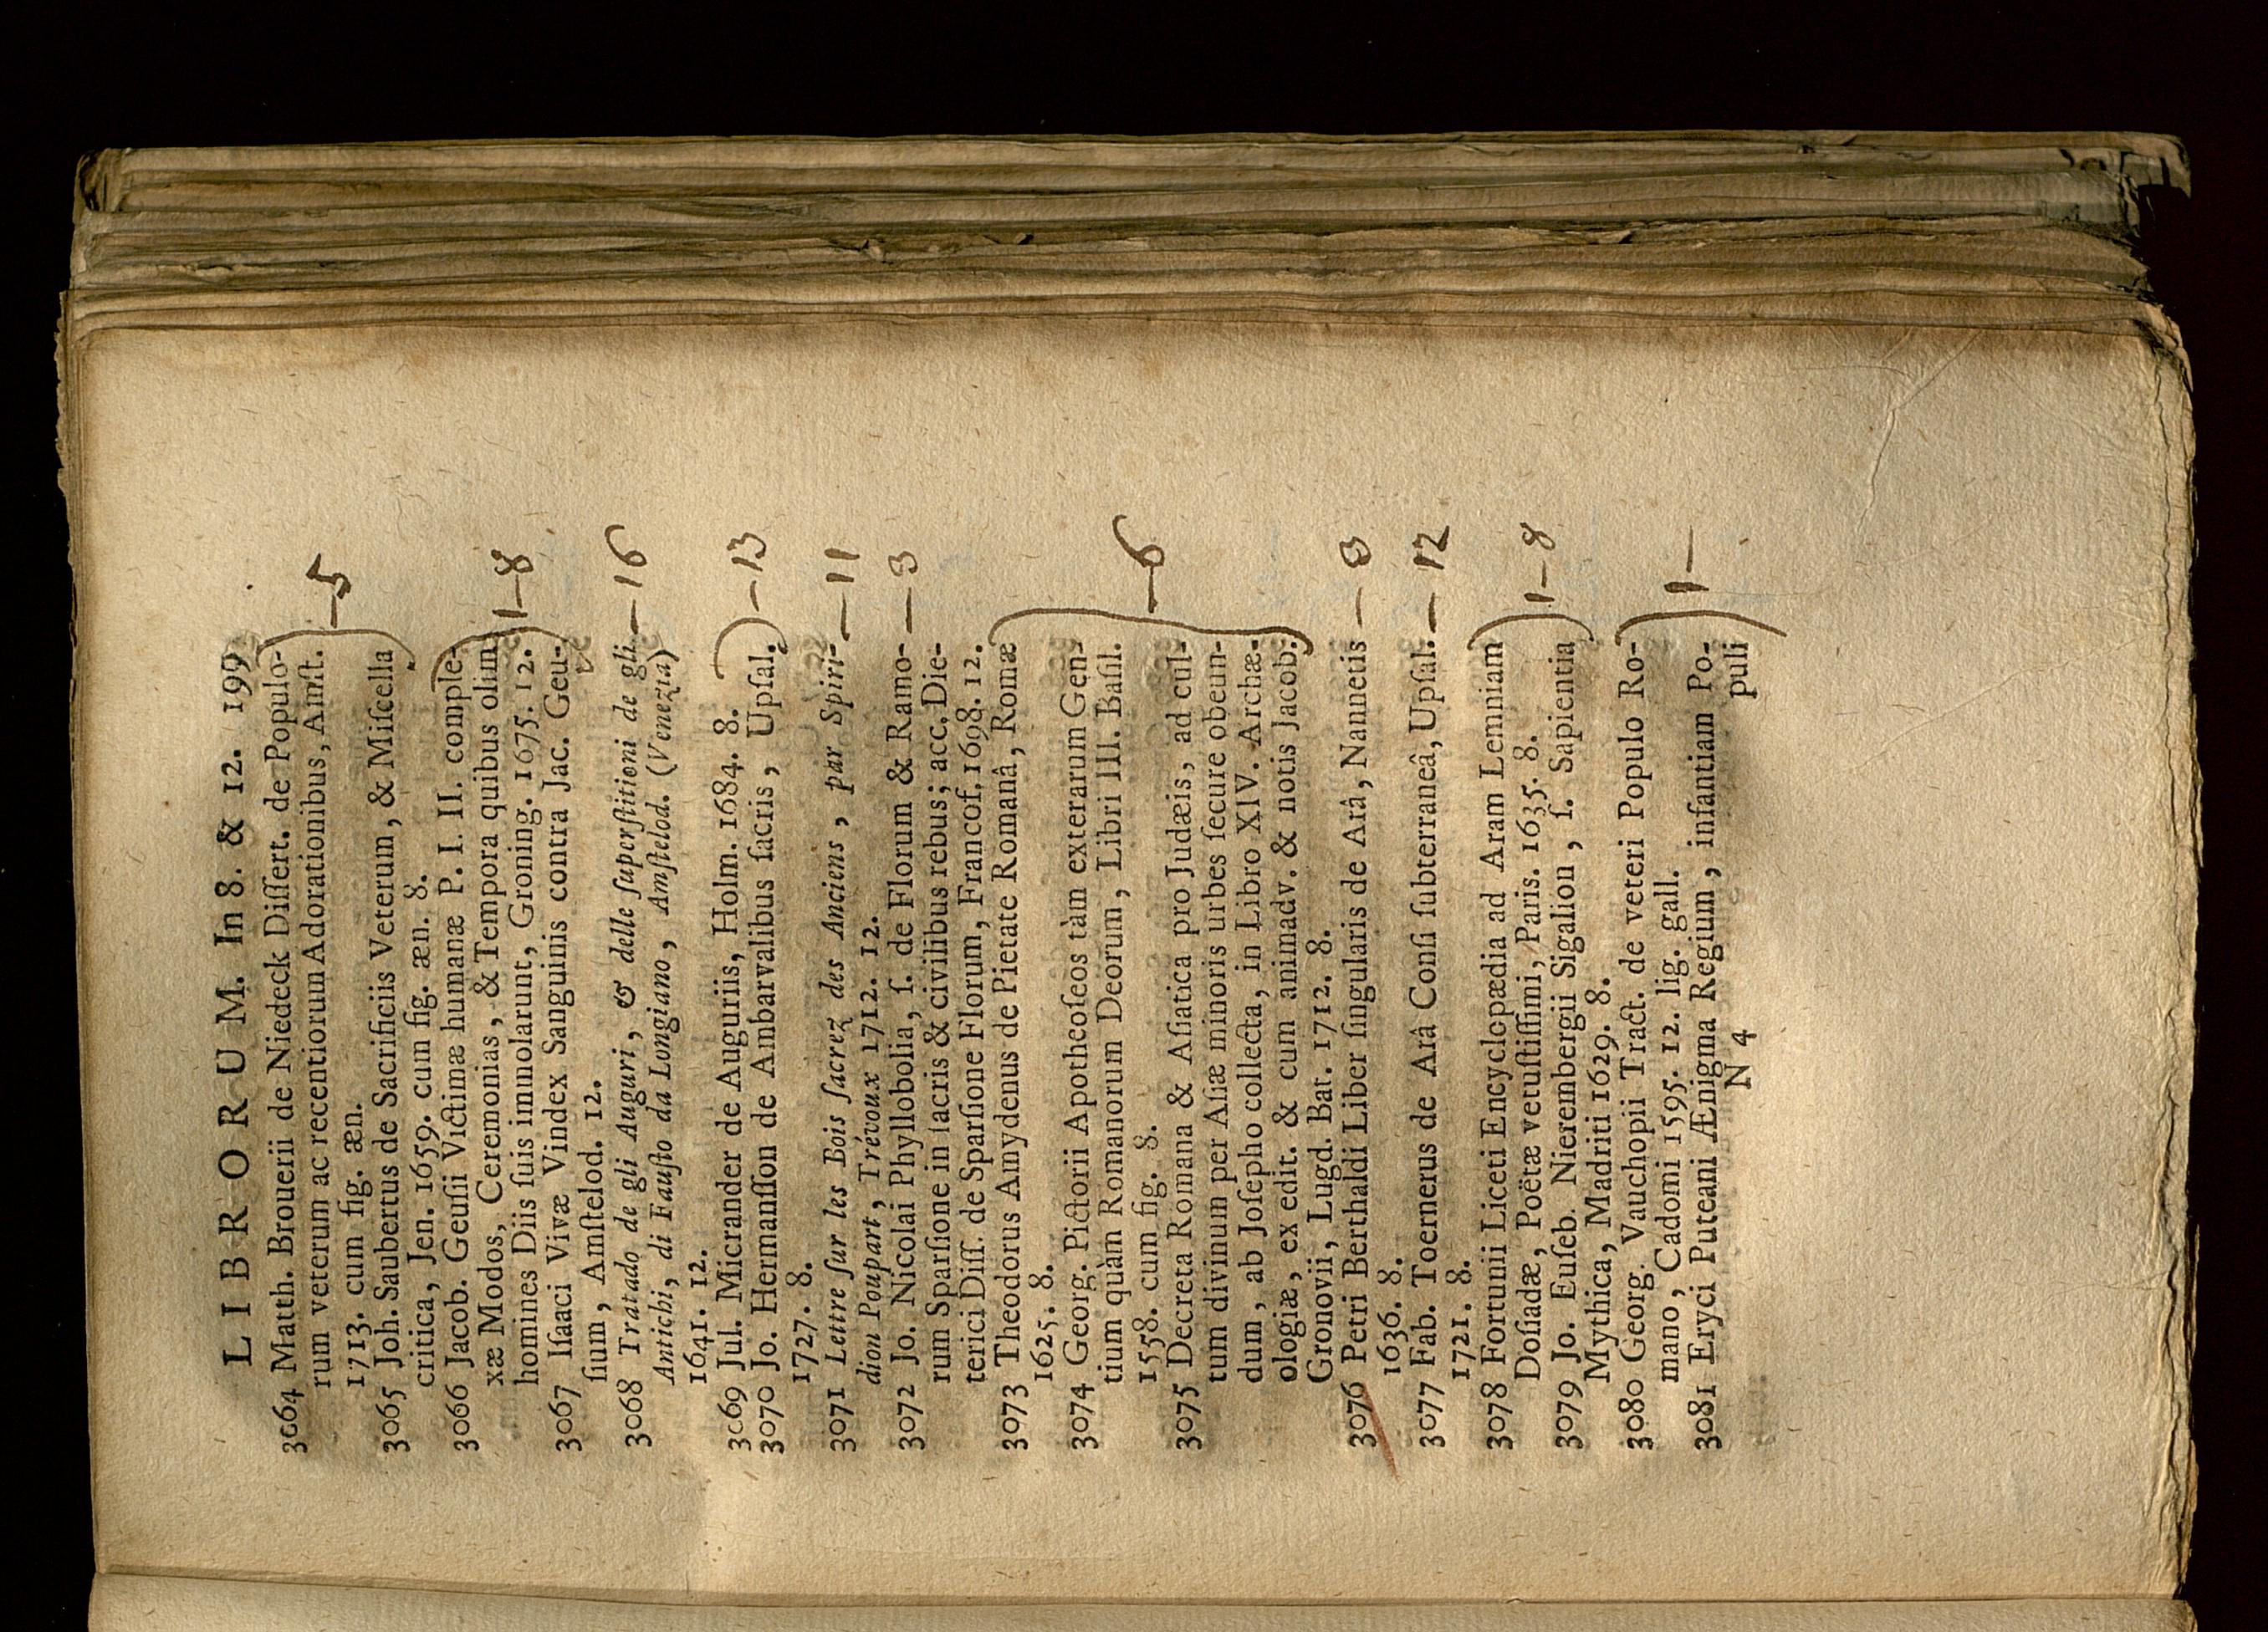 LIBRORUM. In 8. & 12. 199
3064 Matth. Brouerii de Niedeck Diſſert. de Populo-
rum veterum ac recentiorum Adorationibus, Amſt.
1713. cum fig. æn.
—5
3065 Joh. Saubertus de Sacrificiis Veterum, & Miſcella
critica, Jen. 1659. cum fig. æn. 8.
3066 Jacob. Geuſii Victimæ humanæ P. I. II. comple-
xæ Modos, Ceremonias, & Tempora quibus olim
homines Diis ſuis immolarunt, Groning. 1675. 12.
1—8
3067 Iſaaci Vivæ Vindex Sanguinis contra Jac. Geu-
ſium, Amſtelod. 12.
3068 Tratado de gli Auguri, & delle ſuperſtitioni de gli —16
Antichi, di Fauſto da Longiano, Amſtelod. (Venezia)
1641. 12.
3069 Jul. Micrander de Auguriis, Holm. 1684. 8.
—13
3070 Jo. Hermanſſon de Ambarvalibus ſacris, Upſal.
1727. 8.
3071 Lettre ſur les Bois ſacrez des Anciens, par Spiri- —11
dion Poupart, Trévoux 1712. 12.
3072 Jo. Nicolai Phyllobolia, ſ. de Florum & Ramo- —3
rum Sparſione in ſacris & civilibus rebus; acc. Die-
terici Diſſ. de Sparſione Florum, Francof. 1698. 12.
3073 Theodorus Amydenus de Pietate Romanâ, Romæ
1625. 8.
3074 Georg. Pictorii Apotheoſeos tàm exterarum Gen-
tium quàm Romanorum Deorum, Libri III. Baſil.
1558. cum fig. 8.
—6
3075 Decreta Romana & Aſiatica pro Judæis, ad cul-
tum divinum per Aſiæ minoris urbes ſecure obeun-
dum, ab Joſepho collecta, in Libro XIV. Archæ-
ologiæ, ex edit. & cum animadv. & notis Jacob.
Gronovii, Lugd. Bat. 1712. 8.
3076 Petri Berthaldi Liber ſingularis de Arâ, Nannetis
1636. 8.
3077 Fab. Toernerus de Arâ Conſi ſubterraneâ, Upſal. —12
1721. 8.
3078 Fortunii Liceti Encyclopædia ad Aram Lemniam
Doſiadæ, Poëtæ vetuſtiſſimi, Paris. 1635. 8.
1—8
3079 Jo. Euſeb. Nierembergii Sigalion, ſ. Sapientia
Mythica, Madriti 1629. 8.
3080 Georg. Vauchopii Tract. de veteri Populo Ro-
mano, Cadomi 1595. 12. lig. gall.
1—
3081 Eryci Puteani Ænigma Regium, infantiam Po-
N 4 puli